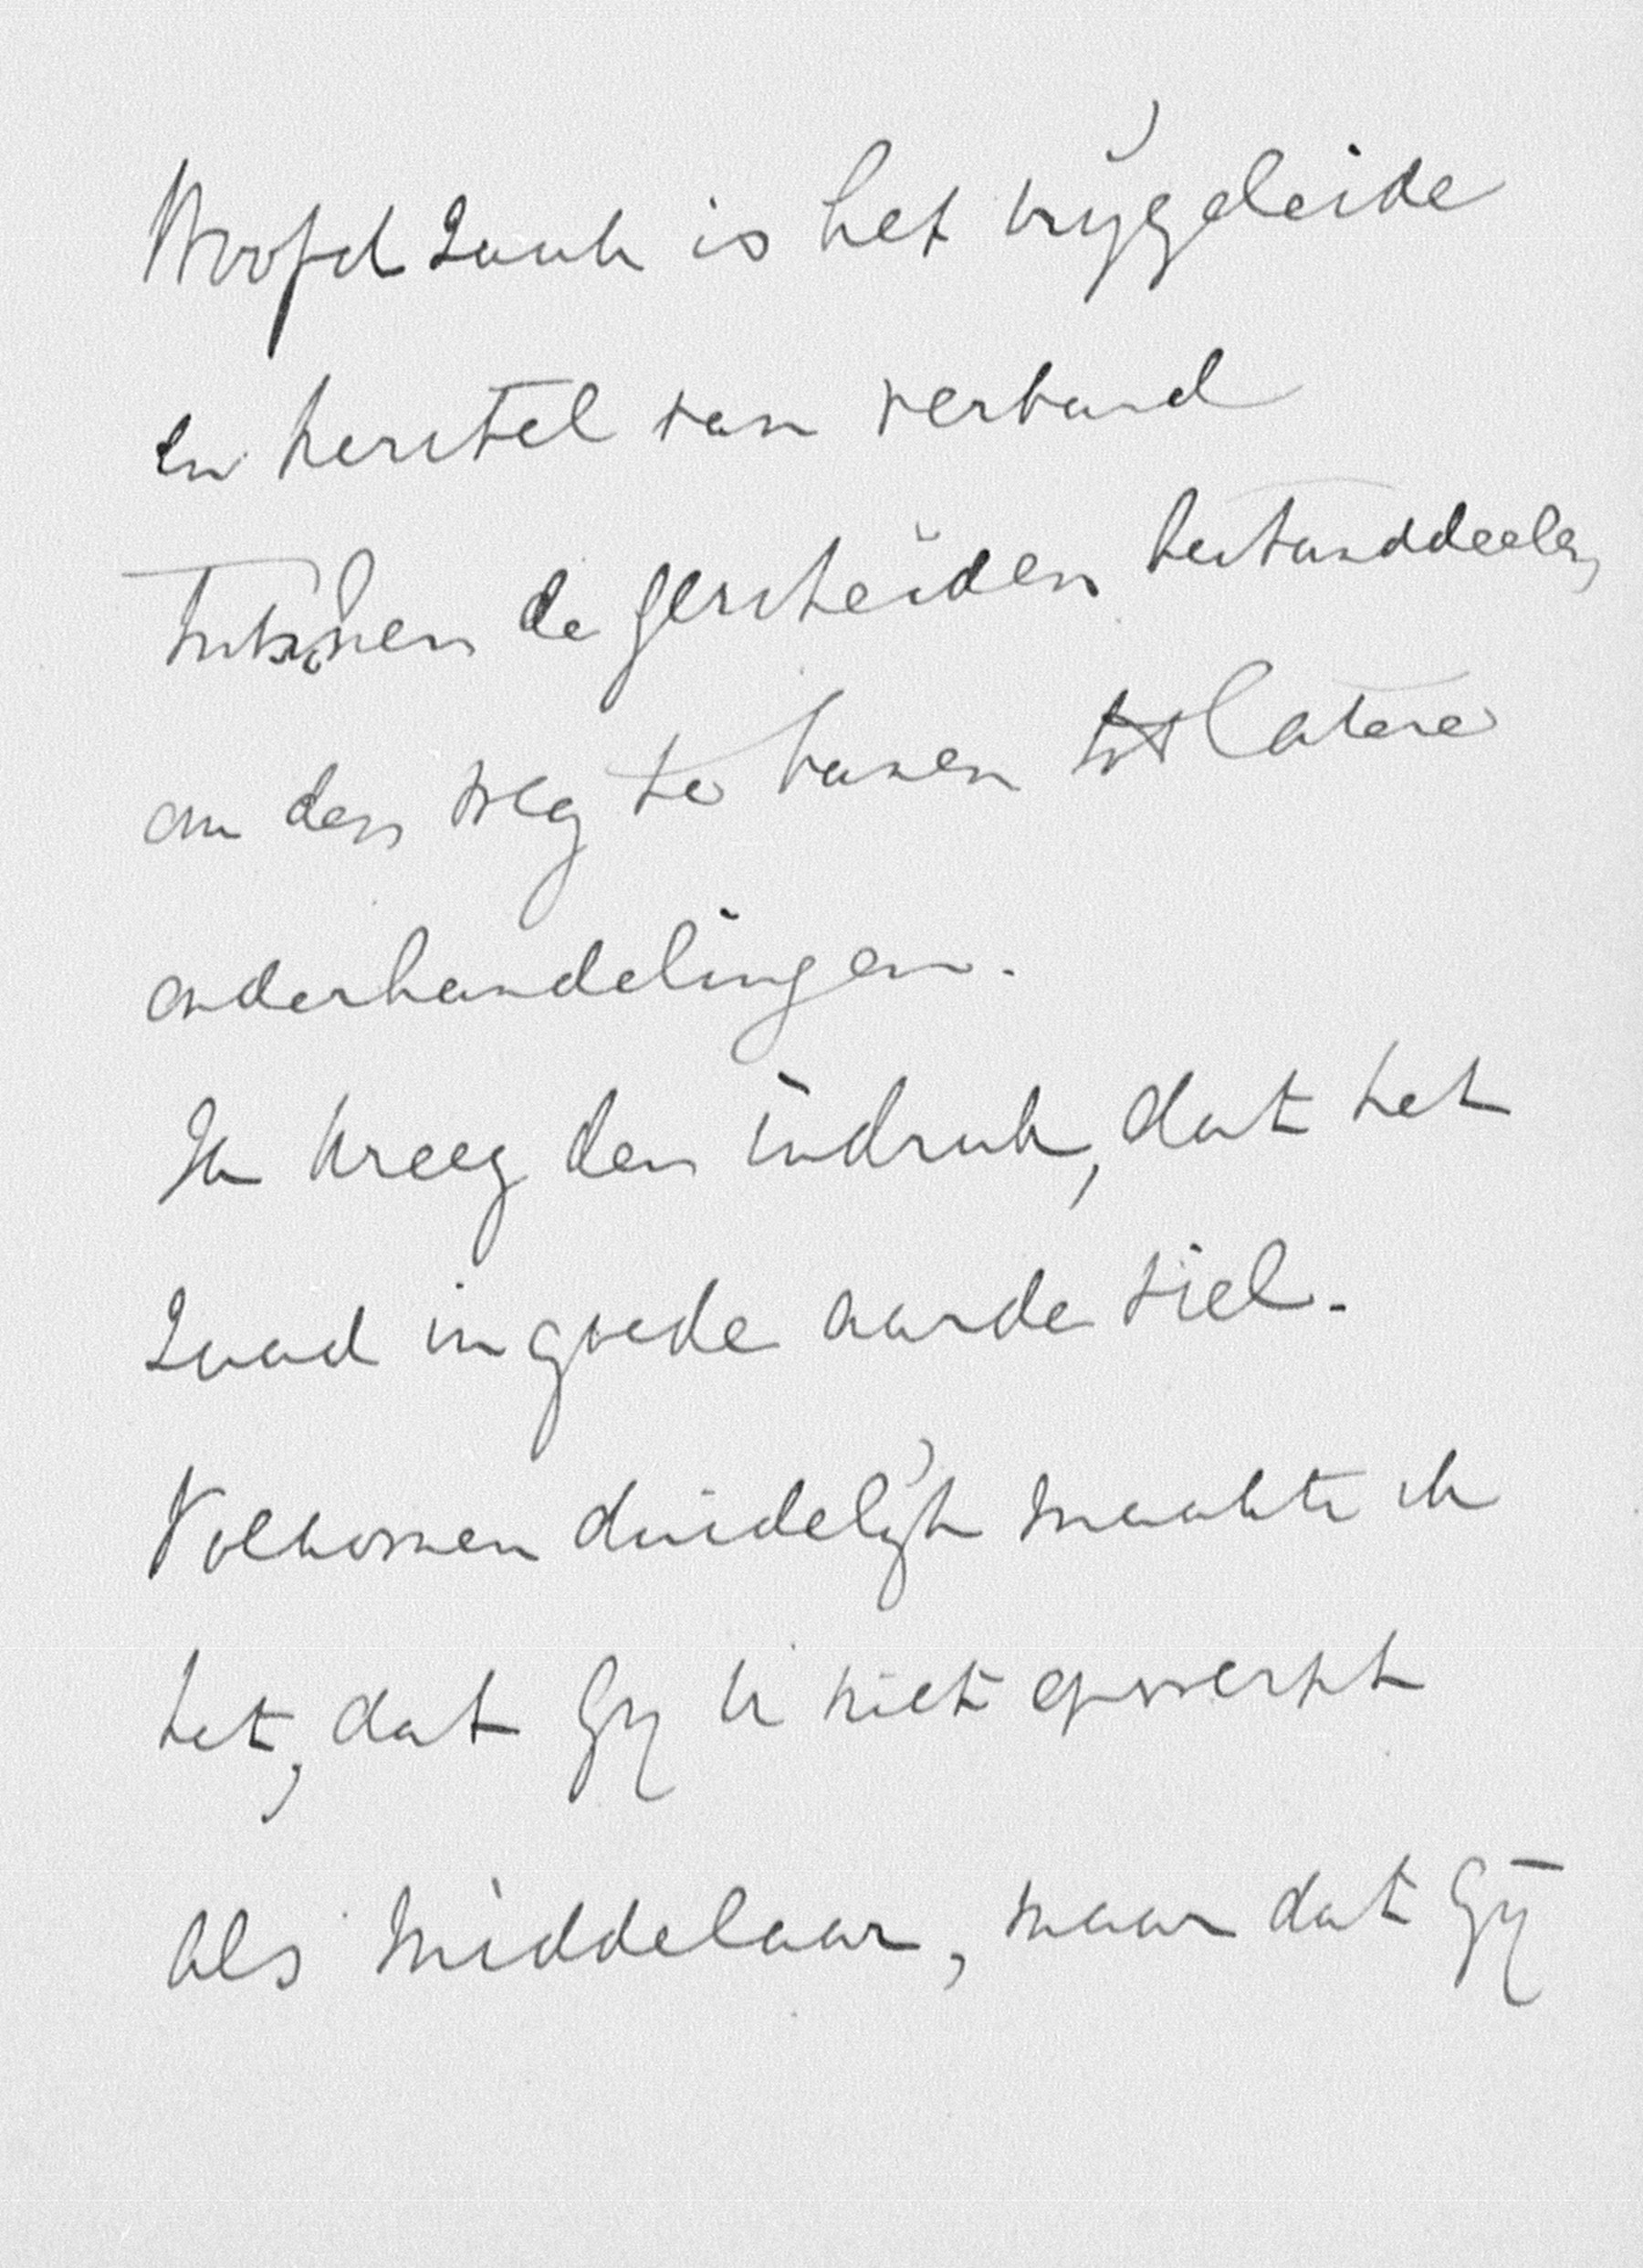 Hoofdzaak is het vrijgeleide
en herstel van verband
tusschen de gescheiden bestanddeelen
om den weg te banen tot latere
onderhandelingen.
Ik kreeg den indruk, dat het
zaad in goede aarde viel.
Volkomen duidelijk maakte ik
het, dat Gij U niet opwerpt
als middelaar, maar dat Gij